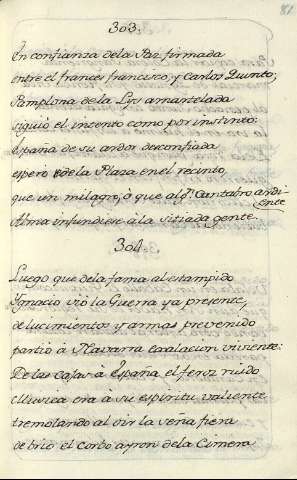 81
303.
En confianza dela Paz firmada
entre el frances francisco, y Carlos Quinto;
Pamplona de la Lys amartelada
siguiò el intento como por instinto:
España de su ardor desconfiada
esperò dela Plaza en el recinto
que un milagro, ò que algn. Cantabro ardiente
Alma infundiese à la sitiada gente.
304.
Luego que dela fama al estampido
Ignacio viò la Guerra ya presente,
de lucimientos y armas prevenido
partiò à Navarra exalacion viviente:
De las Cajas à España el feroz ruido
Musica era à su espiritu valiente
tremolando al oir la seña fiera
de brio el corbo ayron dela Cimera